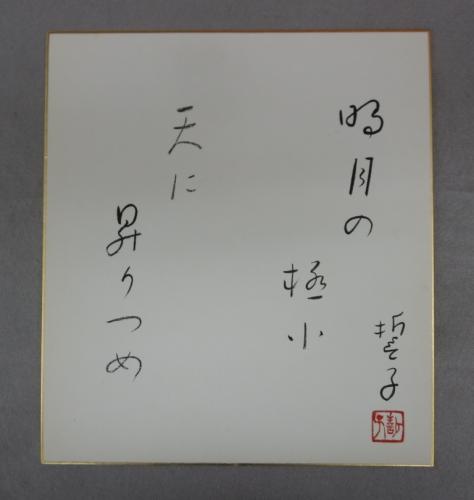 明月の
極小
天に
昇りつめ
哲子